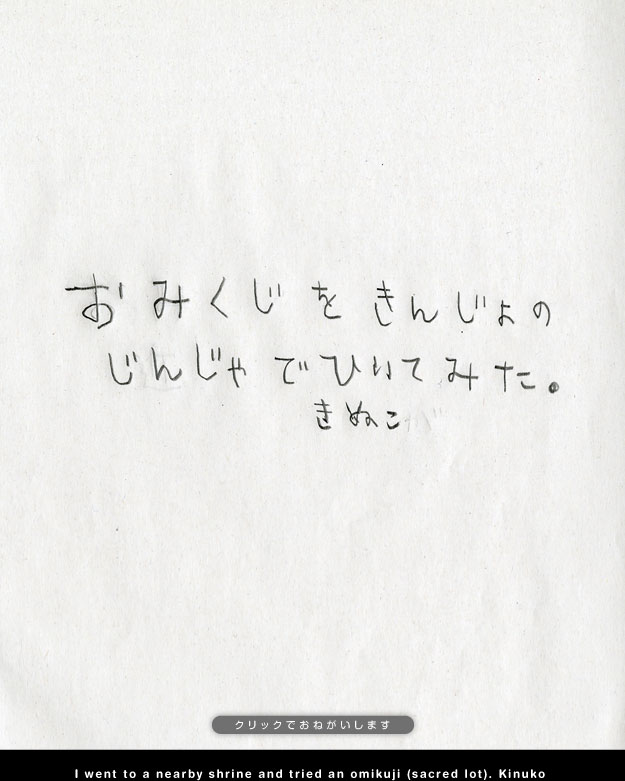 おみくじを きんじょの
じんじゃでひいてみた。
きぬこ
クリックでおねがいします
I went to a nearby shrine and tried an omikuji (sacred lot). Kinuko